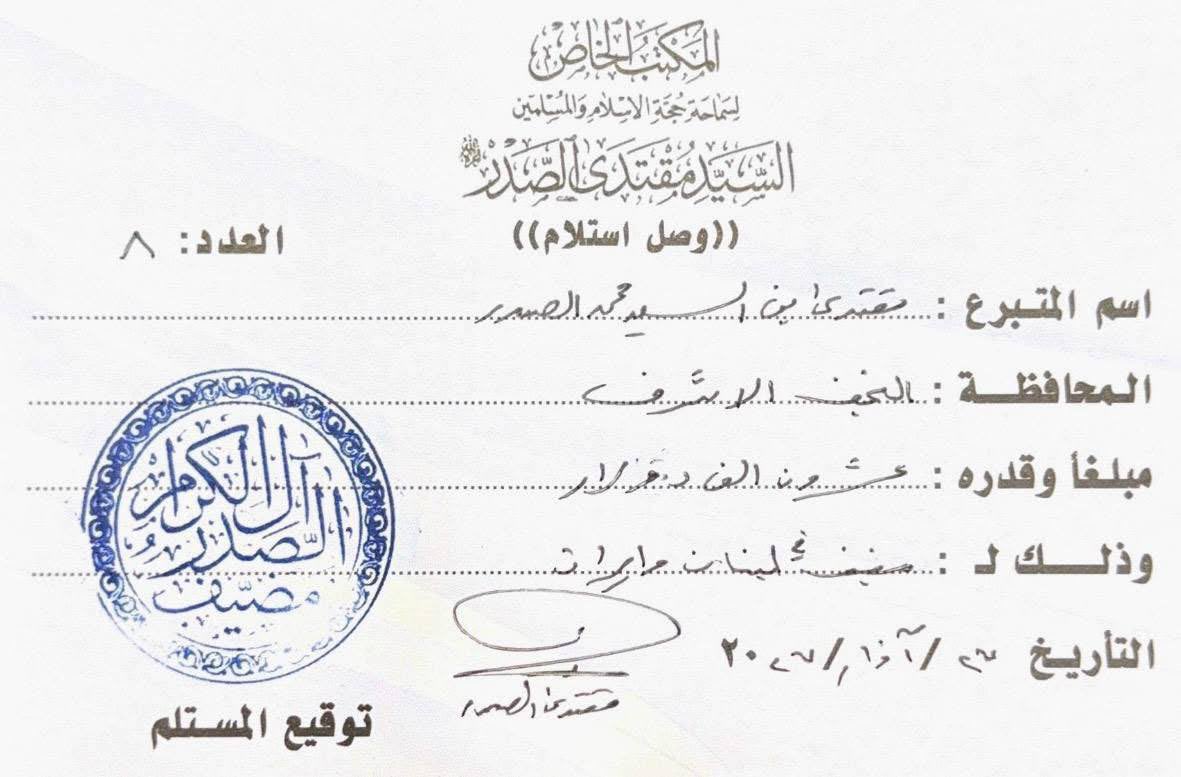 المكتب الخاص
لسماحة حجة الاسلام والمسلمين
السيد مقتدى الصدر
((وصل استلام))
العدد: ٨
اسم المتبرع : مقتدى ابن السيد محمد الصدر
المحافظة : النجف الاشرف
مبلغاً وقدره : عشرون الف دولار
وذلك لـ : لبنان وايران
التأريخ /آذار/
مقتدى الصدر
آل الصدر الكرام
مضيف
توقيع المستلم